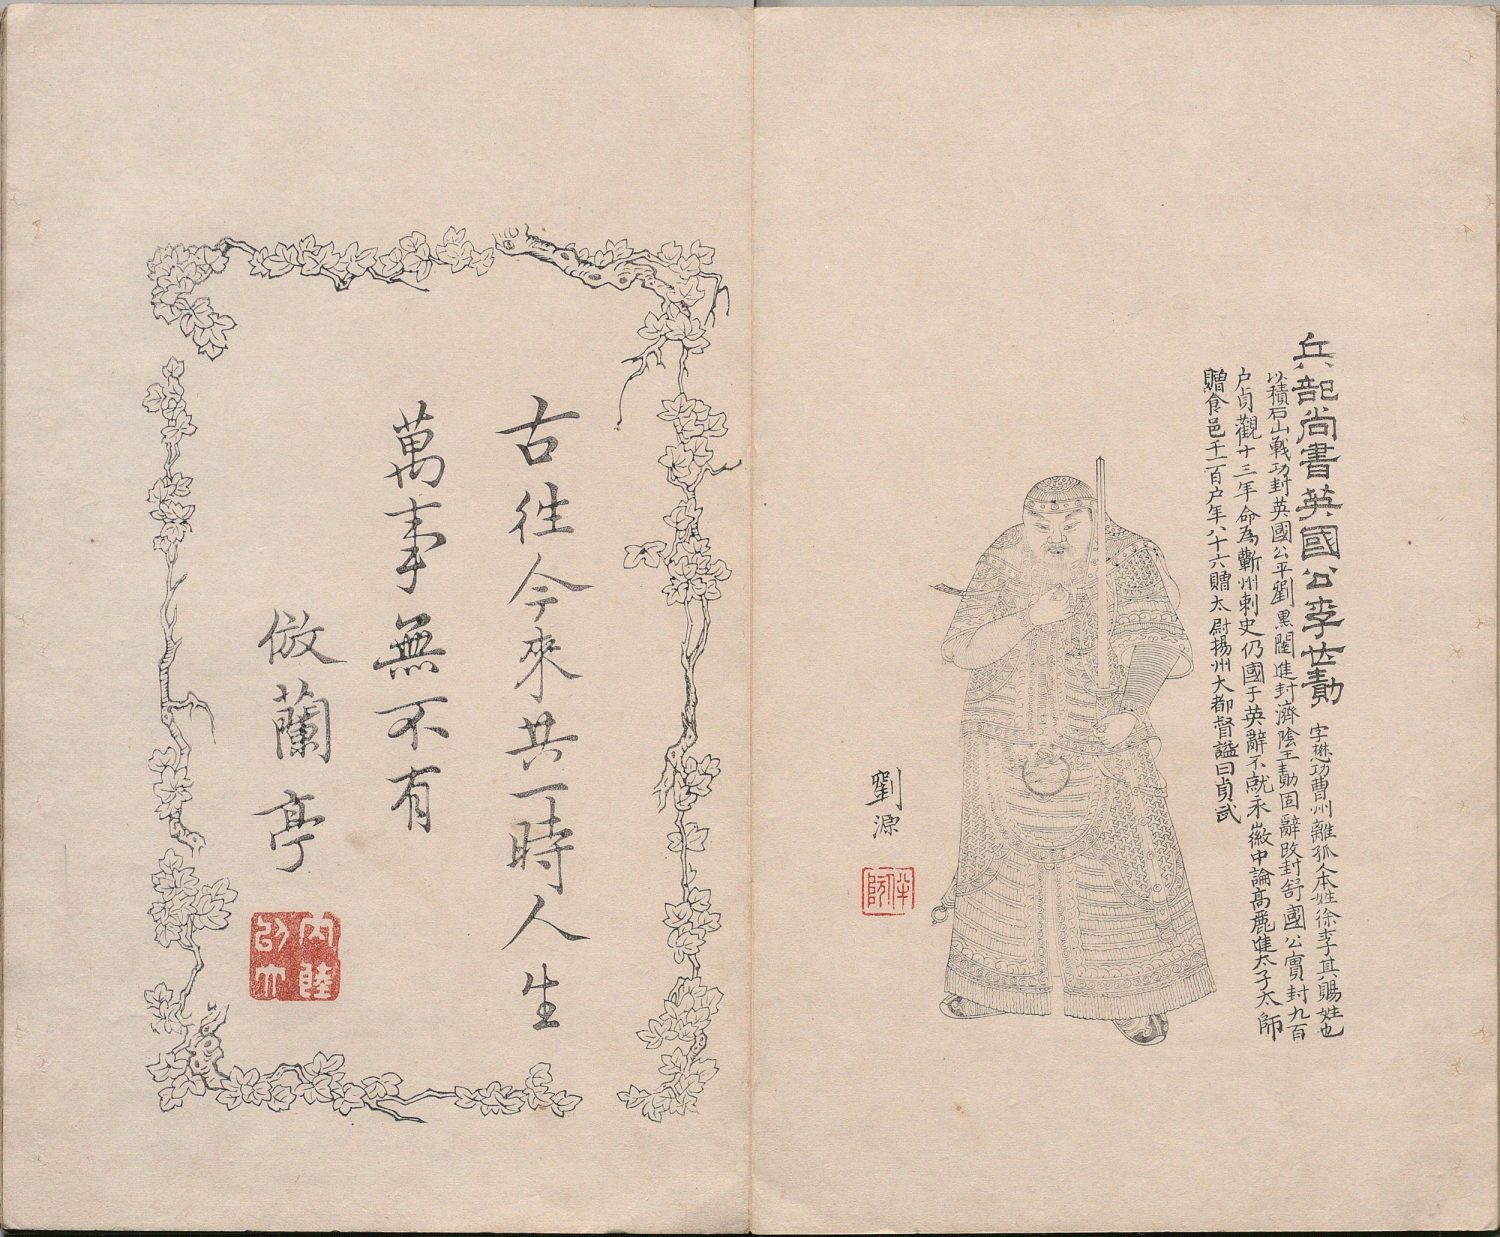 兵部尚書英國公李世勣
字懋功曹州離狐人本姓徐李其賜姓也
以積石山戰功封英國公平劉黑闥進封濟陰王勣固辭改封舒國公實封九百
户貞觀十三年命為蘄州刺史仍國于英辭不就永徽中論髙麗進太子太師
贈食邑千一百户年八十六贈太尉揚州大都督諡曰貞武
劉源
古往今來共一時人生
萬事無不有
倣蘭亭